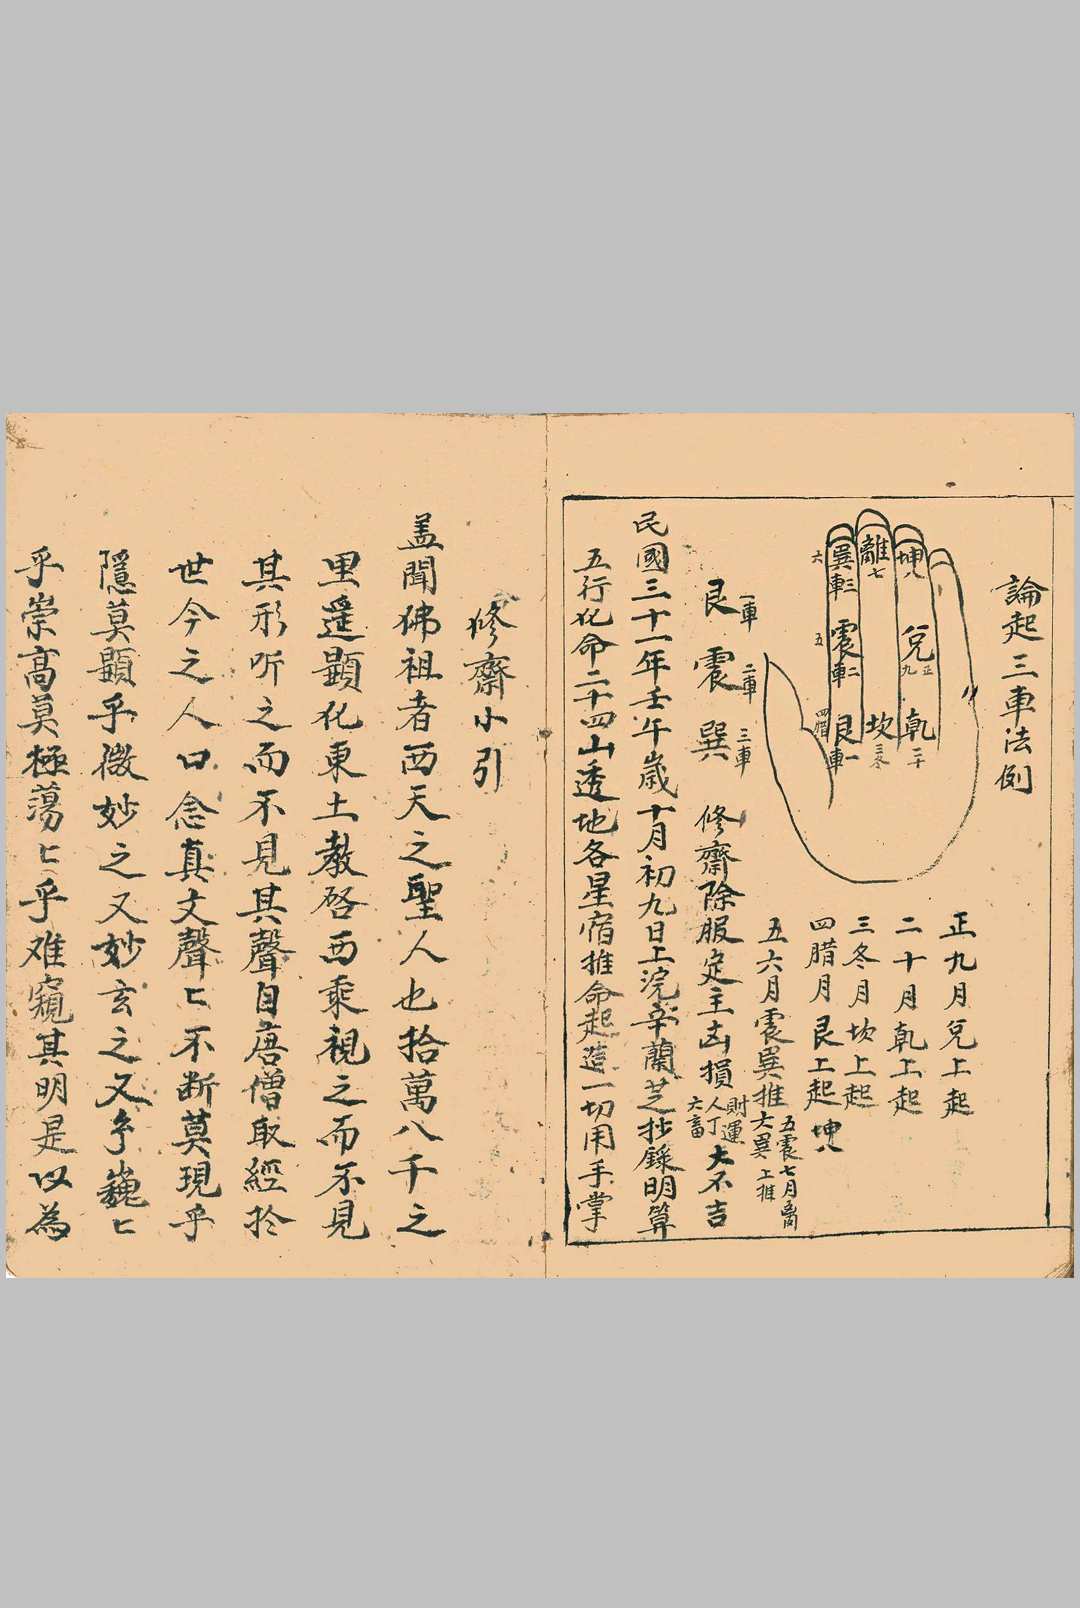 論起三車法例
巽車三
六
離七
坤八
震車二
五
兌
正九
艮車一
四腊
坎
三冬
乾
二十
正九月兌上起
二十月乾上起
三冬月坎上起
四腊月艮上起坤八
五六月震巽推
五震七月离
六巽上推
艮一車
震二車
巽三車
修齋除服定主凶損
財運
人丁
六畜
大不吉
民國三十一年壬午歲十月初九日上浣辛蘭芝抄錄明算
五行化命二十四山透地各星宿推命起造一切用手掌
修齋小引
盖聞佛祖者西天之聖人也拾萬八千之
里遥顕化東土教啓西乘視之而不見
其形听之而不見其聲自唐僧取經於
世今之人口念真文聲匕不断莫現乎
隱莫顕乎微妙之又妙玄之又玄巍匕
乎崇高莫極蕩匕乎难窺其明是以為